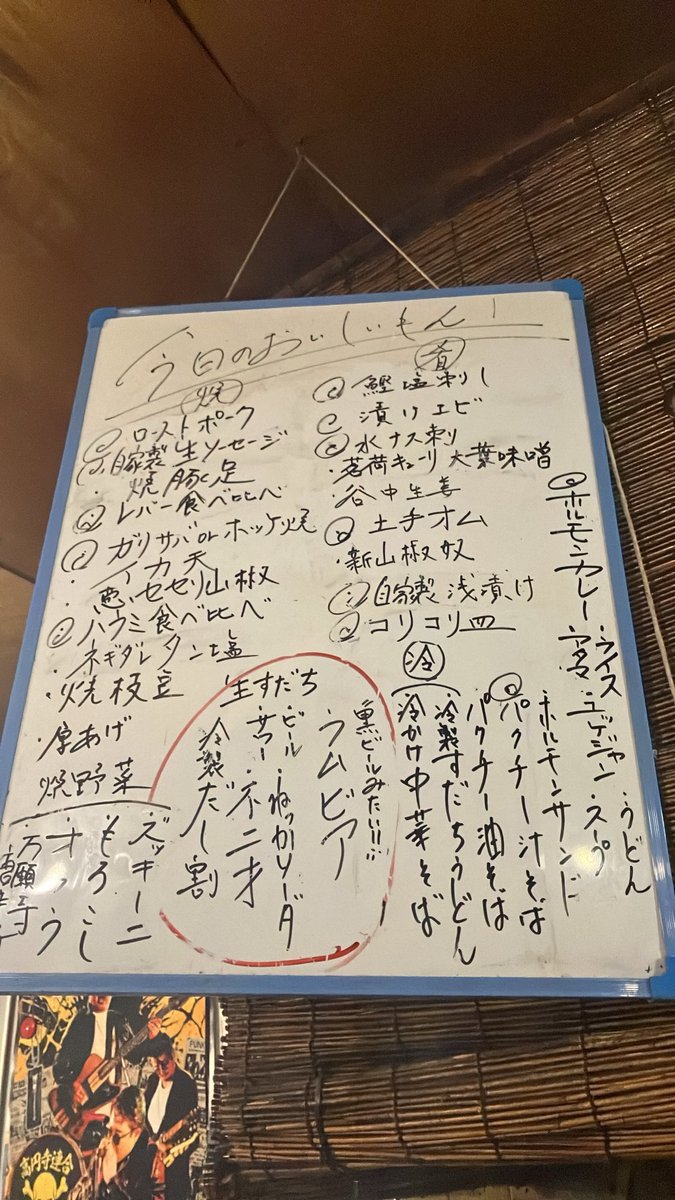 今日のおいしいもん!
焼
ローストポーク
自家製生ソーセージ
焼豚足
レバー食べ比べ
ガリサバorホッケ焼
イカ天
セセリ山椒
ハラミ食べ比べ
ネギダレタン塩
焼枝豆
厚あげ
焼野菜
ズッキーニ
もろこし
オクラ
万願寺
肴
鰹塩刺し
漬けエビ
水ナス刺
茗荷キューリ大葉味噌
谷中生姜
土手オム
新山椒奴
自家製浅漬け
コリコリ皿
ホルモンカレー・ライス・うどん
ユッケジャンスープ
ホルモンサンド
冷
パクチー汁そば
パクチー油そば
冷製すだちうどん
冷かけ中華そば
黒ビールみたい!!
ラムビア
生すだち
・ビール・ねっかソーダ
・サワー・不二才
冷製だし割
高円寺連合